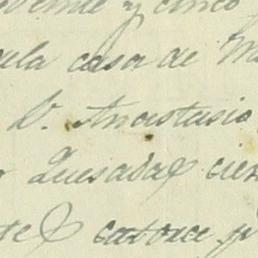 veinte y cinco
la casa de
D. Anastasio
Quesada
catorce y